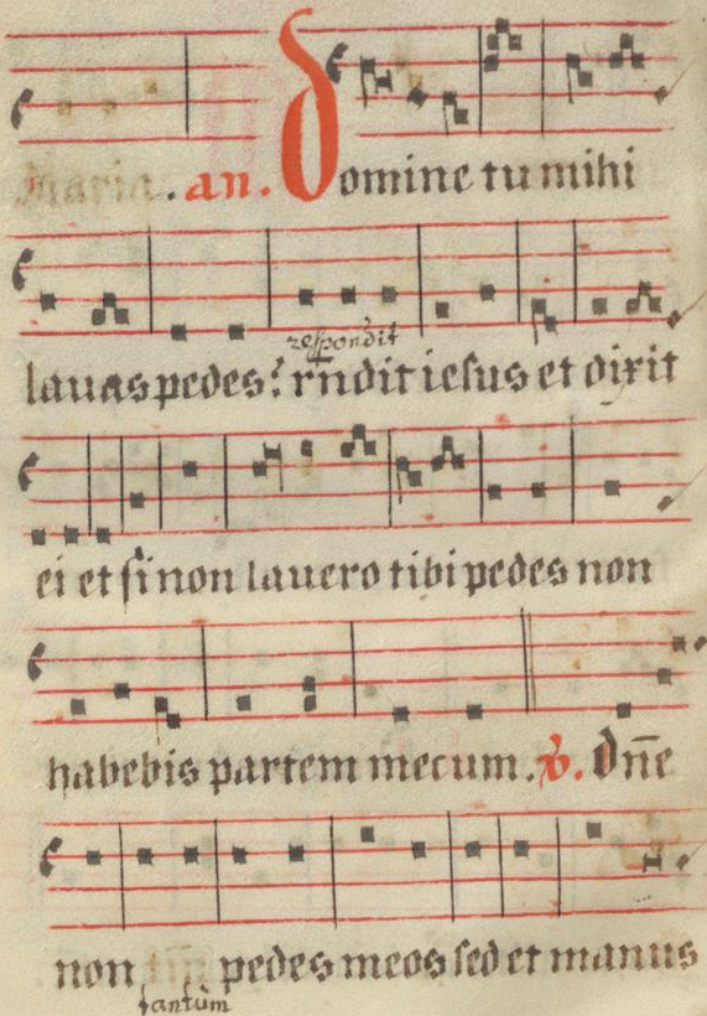 Maria. an. Domine tu mihi
respondit
lauas pedes? rñdit iesus et dixit
ei et si non lauero tibi pedes non
habebis partem mecum. v. Dñe
non tm̄ pedes meos sed et manus
tantùm